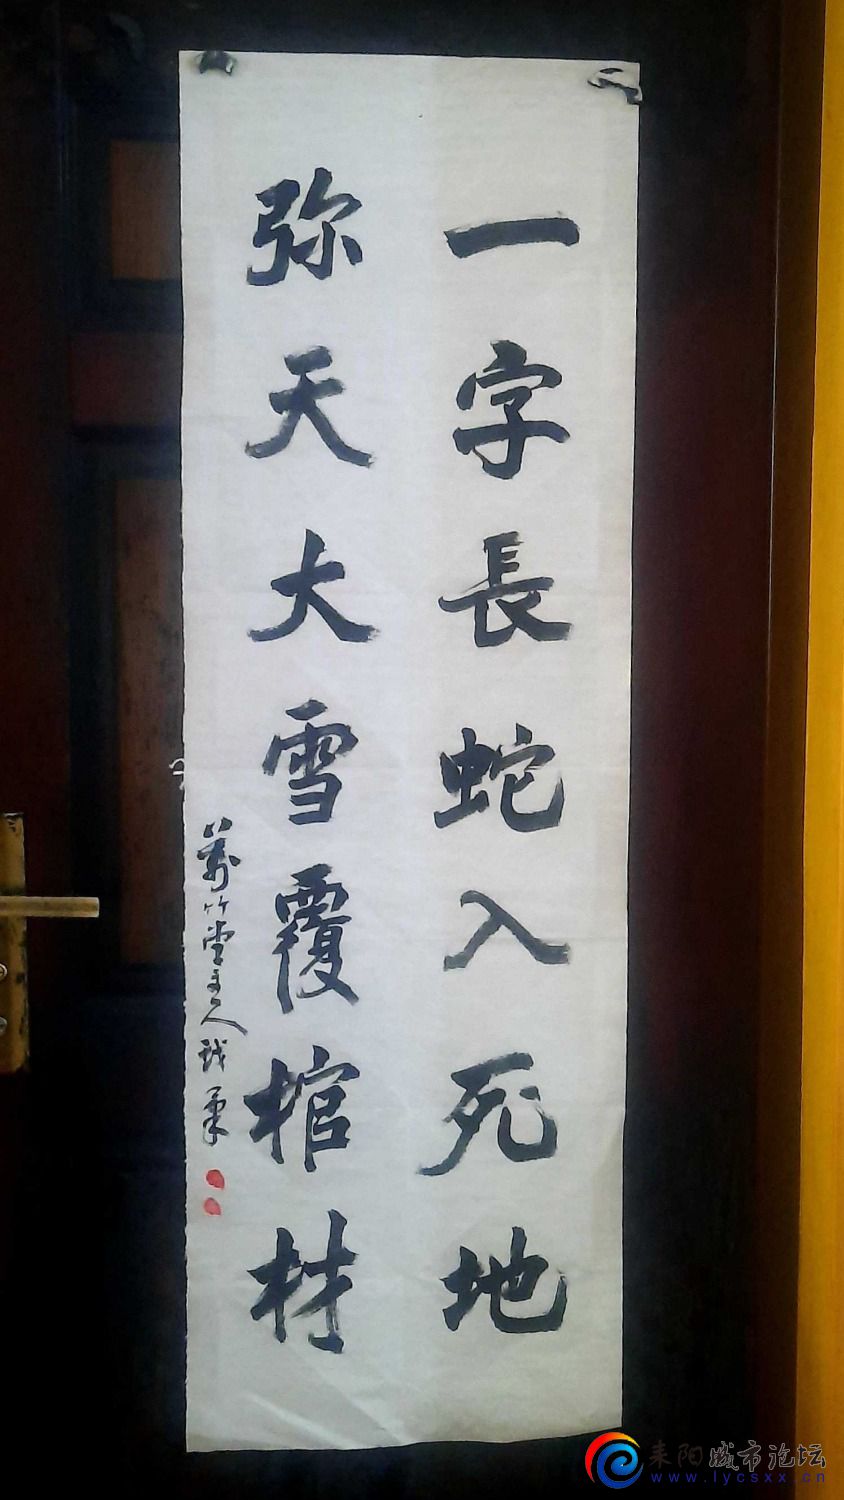 一字長蛇入死地
弥天大雪覆棺材
萬竹堂主人戏筆
耒阳城市论坛
www.lycsxx.cn